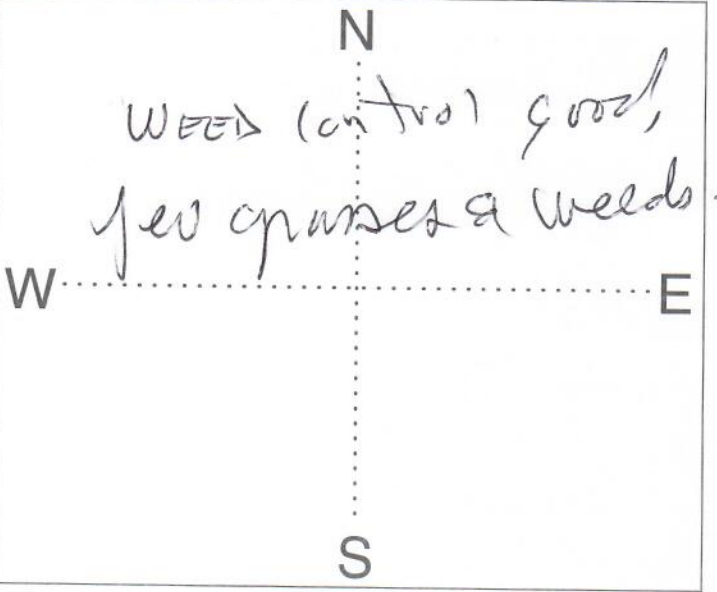 N
WEED control good,
few grasses & weeds.
W E
S